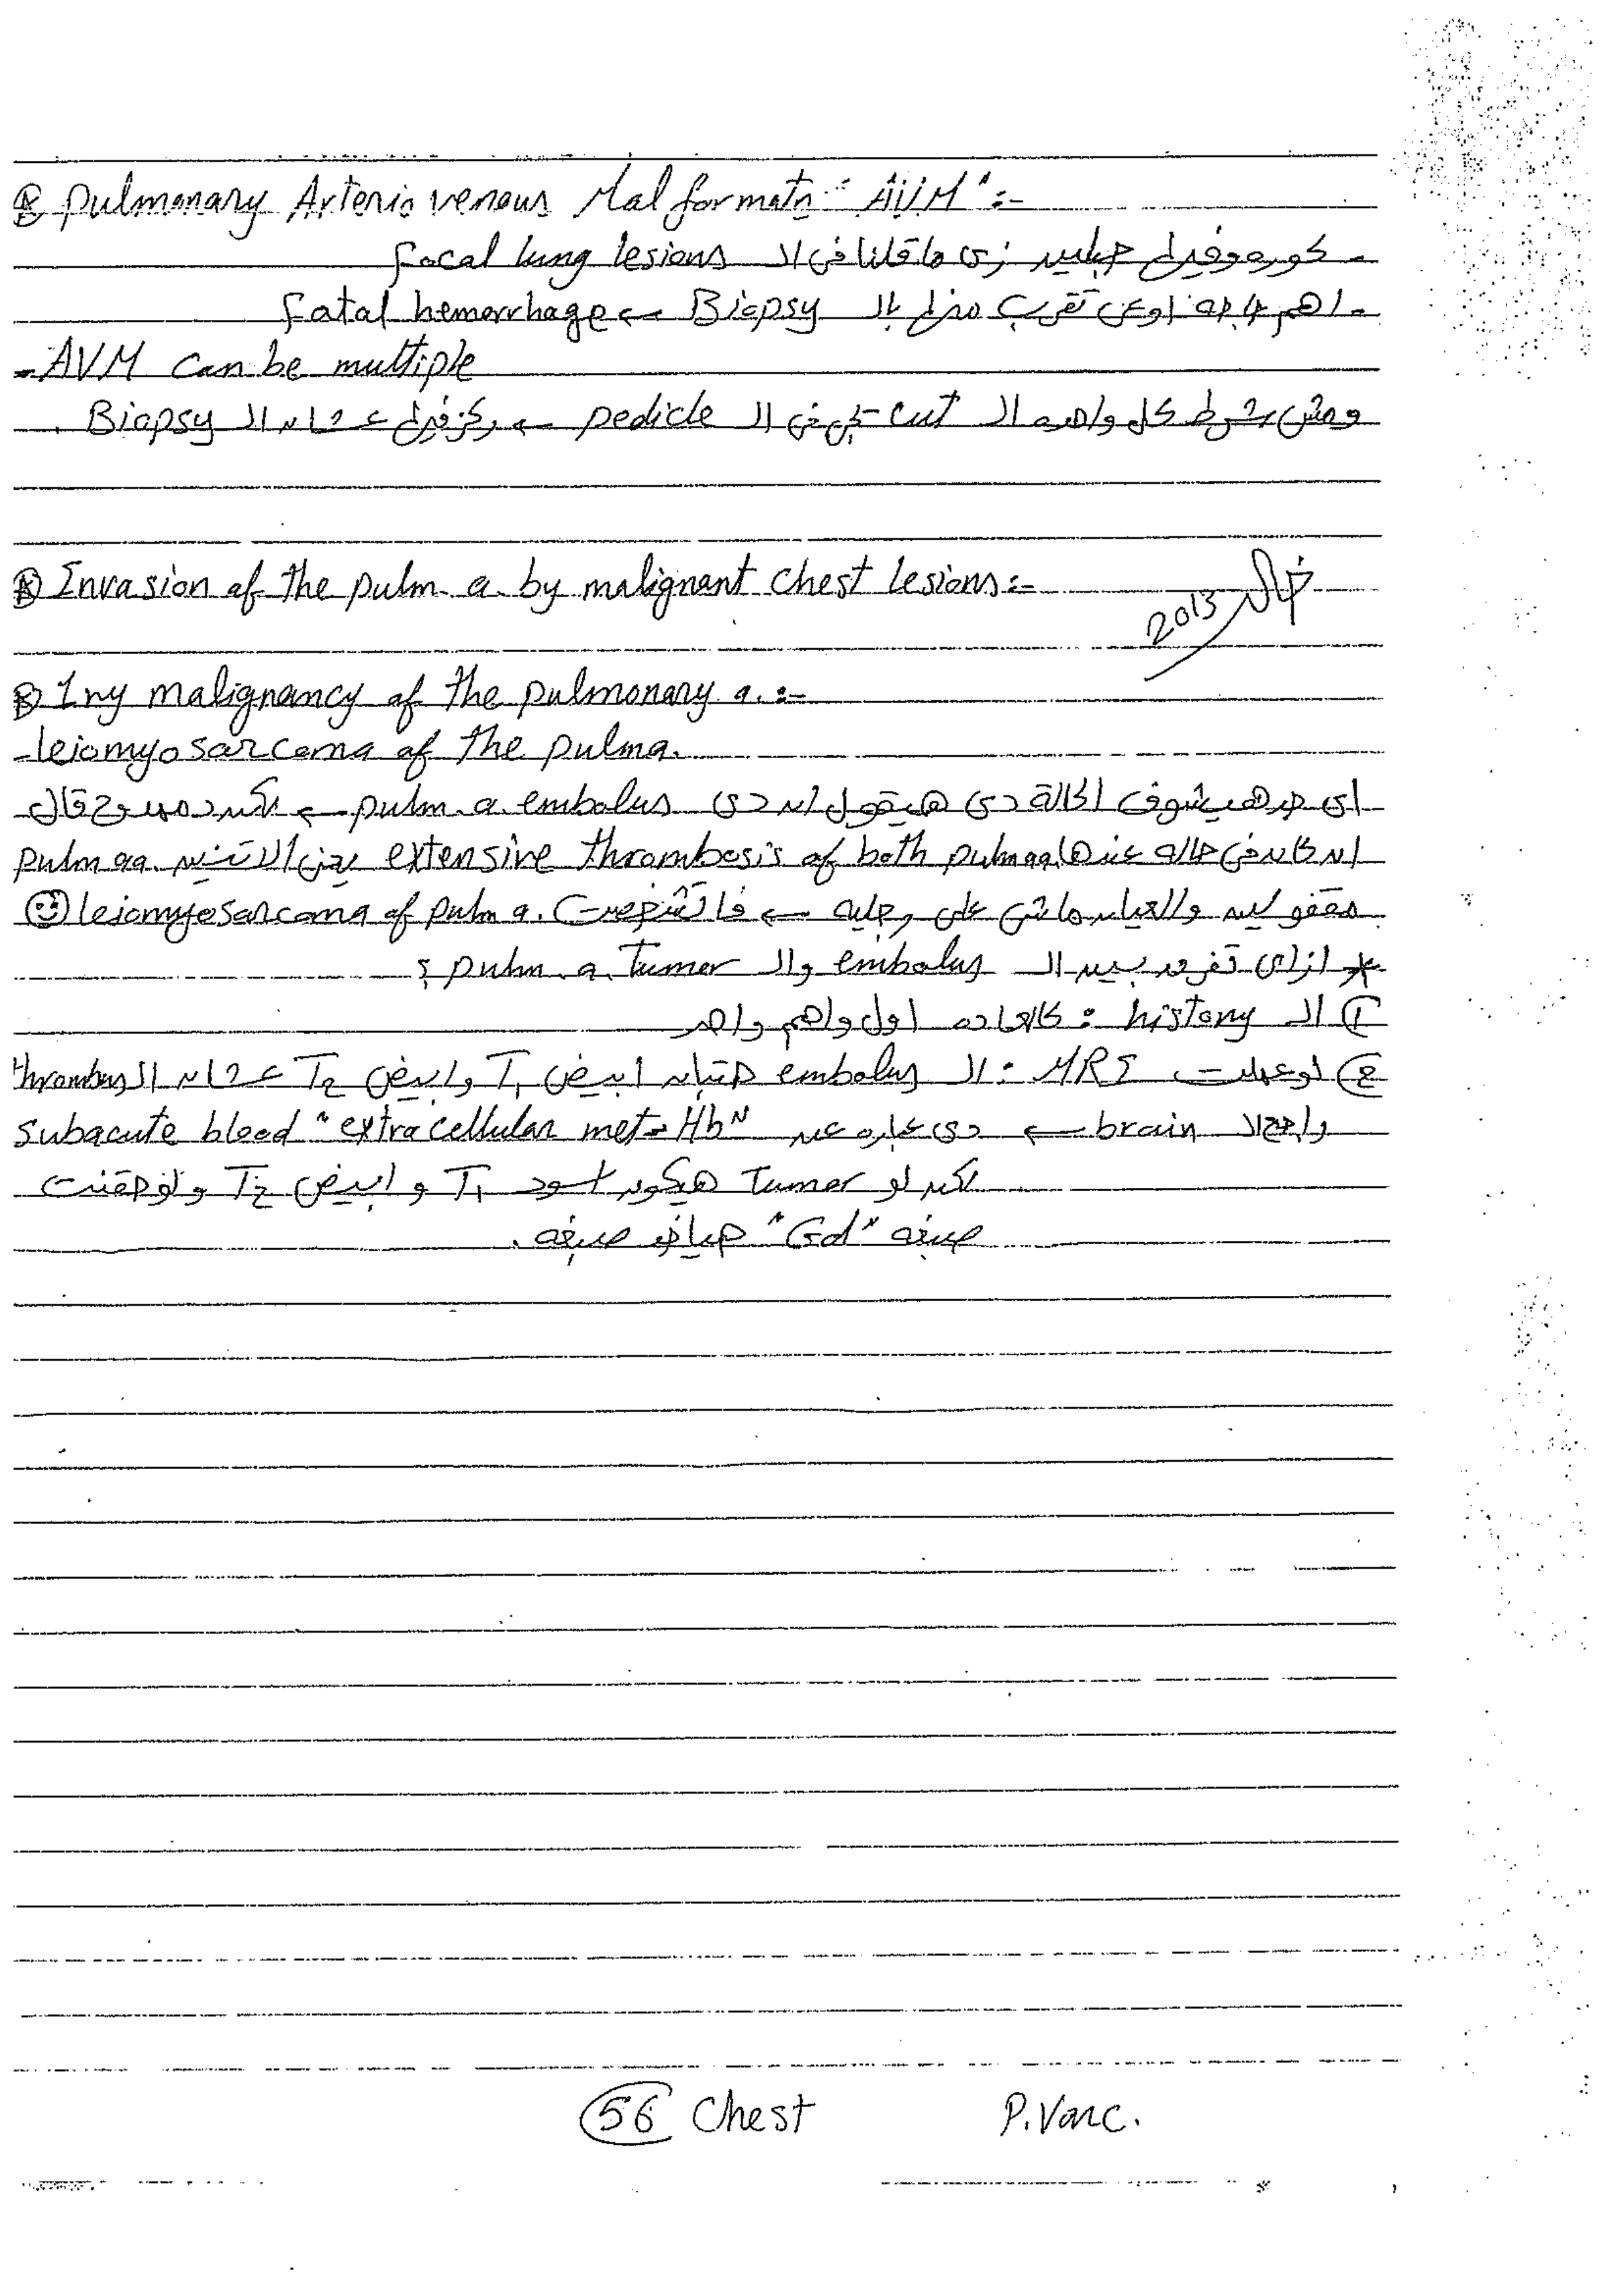 Pulmonary Arterio venous Malformatn "AVM" :-
- زى ما قلنا فى الـ focal lung lesions
- اهم حاجه اوعى تقرب منها بالـ Biopsy → fatal hemorrhage
- AVM can be multiple
ومش بشرط كل واحده الـ cut تيجى فى الـ pedicle → ركز فيها عشان الـ Biopsy .
Invasion of the pulm. a. by malignant chest lesions :-
2013
1ry malignancy of the pulmonary a. :-
- leiomyosarcoma of the pulm a.
اى حد هيشوف الحالة دى هيقول ان دى pulm. a. embolus → لكن د. ممدوح قال
ان كان فى حاله عندها extensive thrombosis of both pulm aa. يعنى الاتنين pulm aa.
مقفولين والعيان ماشى على رجليه → فاتشخصت leiomyosarcoma of pulm a.
* ازاى تفرق بين الـ embolus والـ pulm. a. Tumor ؟
① الـ history : كالعاده اول واهم واحد
② لو عملت MRI : الـ embolus هتبان ابيض T1 وابيض T2 عشان الـ thrombus
راجع الـ brain → دى عباره عن subacute blood "extracellular met-Hb"
لكن لو Tumor هيكون اسود T1 و ابيض T2 ولو حقنت
صبغه "Gd" هياخد صبغه .
56 Chest P.Varc.